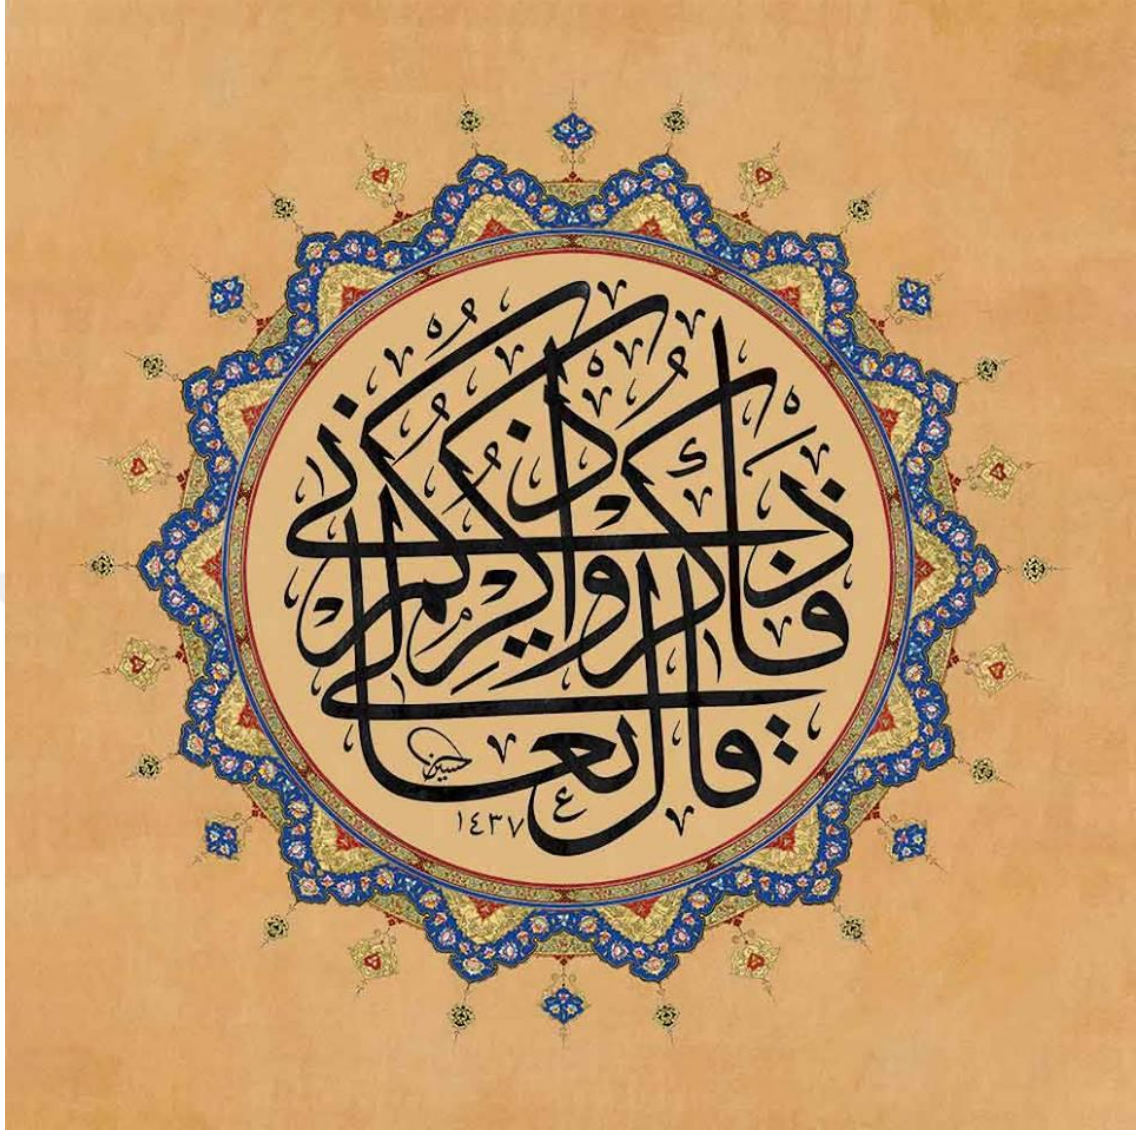 قال تعالى
فاذكروني اذكركم
حسين
١٤٣٧